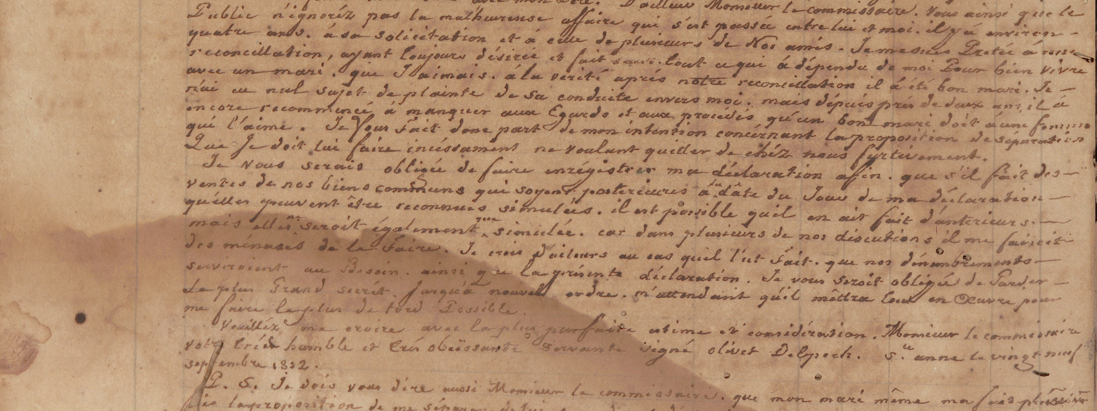 avec mon Père. D'ailleurs Monsieur le commissaire. Vous ainsi que le
Public n'ignoréz pas la malheureuse affaire qui s'est passée entre lui et moi. il y a environ
quatre ans. a sa solicitation et a celle de plusieurs de Nos amis. Je me suis Pretée a une
reconcillation, ayant toujours désirée et fait tout ce qui à dépendu de moi Pour bien vivre
avec un mari. que J'aimais. a la verité après notre reconcillation il à été bon mari. Je
n'ai eu nul sujet de plainte de sa conduite envers moi. mais dépuis près de deux ans, il a
encore recommencé à manquer aux Egards et aux procedés qu'un bon mari doit à une femme
qui l'aime. Je Vous fait donc part de mon intention concérnant la proposition de séparation
Que Je doit lui faire incessament ne voulant quitter de chéz nous furtivement.
Je vous serais obligée de faire enrégistrer ma déclaration afin. que s'il fait des
ventes de nos biens communs qui soyent postérieures à la dâte du Jour de ma déclaration
qu'elles peuvent être reconnues simulées. il est possible qu'il en ait fait d'antérieurs.
mais elles seroit également que simulée. car dans plusieurs de nos discutions il me faisoit
des ménases de le Faire. Je crois d'ailleurs au cas qu'il l'eut Fait. que nos dénombrements
serviroient au Besoin. ainsi que la présente déclaration. Je vous seroit obligée de Garder
Le plus Grand secrét. Jusqu'a nouvel ordre. m'attendant qu'il mettra tout en Œuvre pour
me faire le plus de tord Possible.
Veuilléz me croire avec la plus parfaite estime et considération. Monsieur le commissaire
votre trés humble et trés obeïssante servante signé olivet Delpech. Ste anne le vingt neuf
septembre 1832.
P. S. Je dois vous dire aussi Monsieur le commissaire. que mon mari même ma fais plusieurs
fois la proposition de me séparer de lui